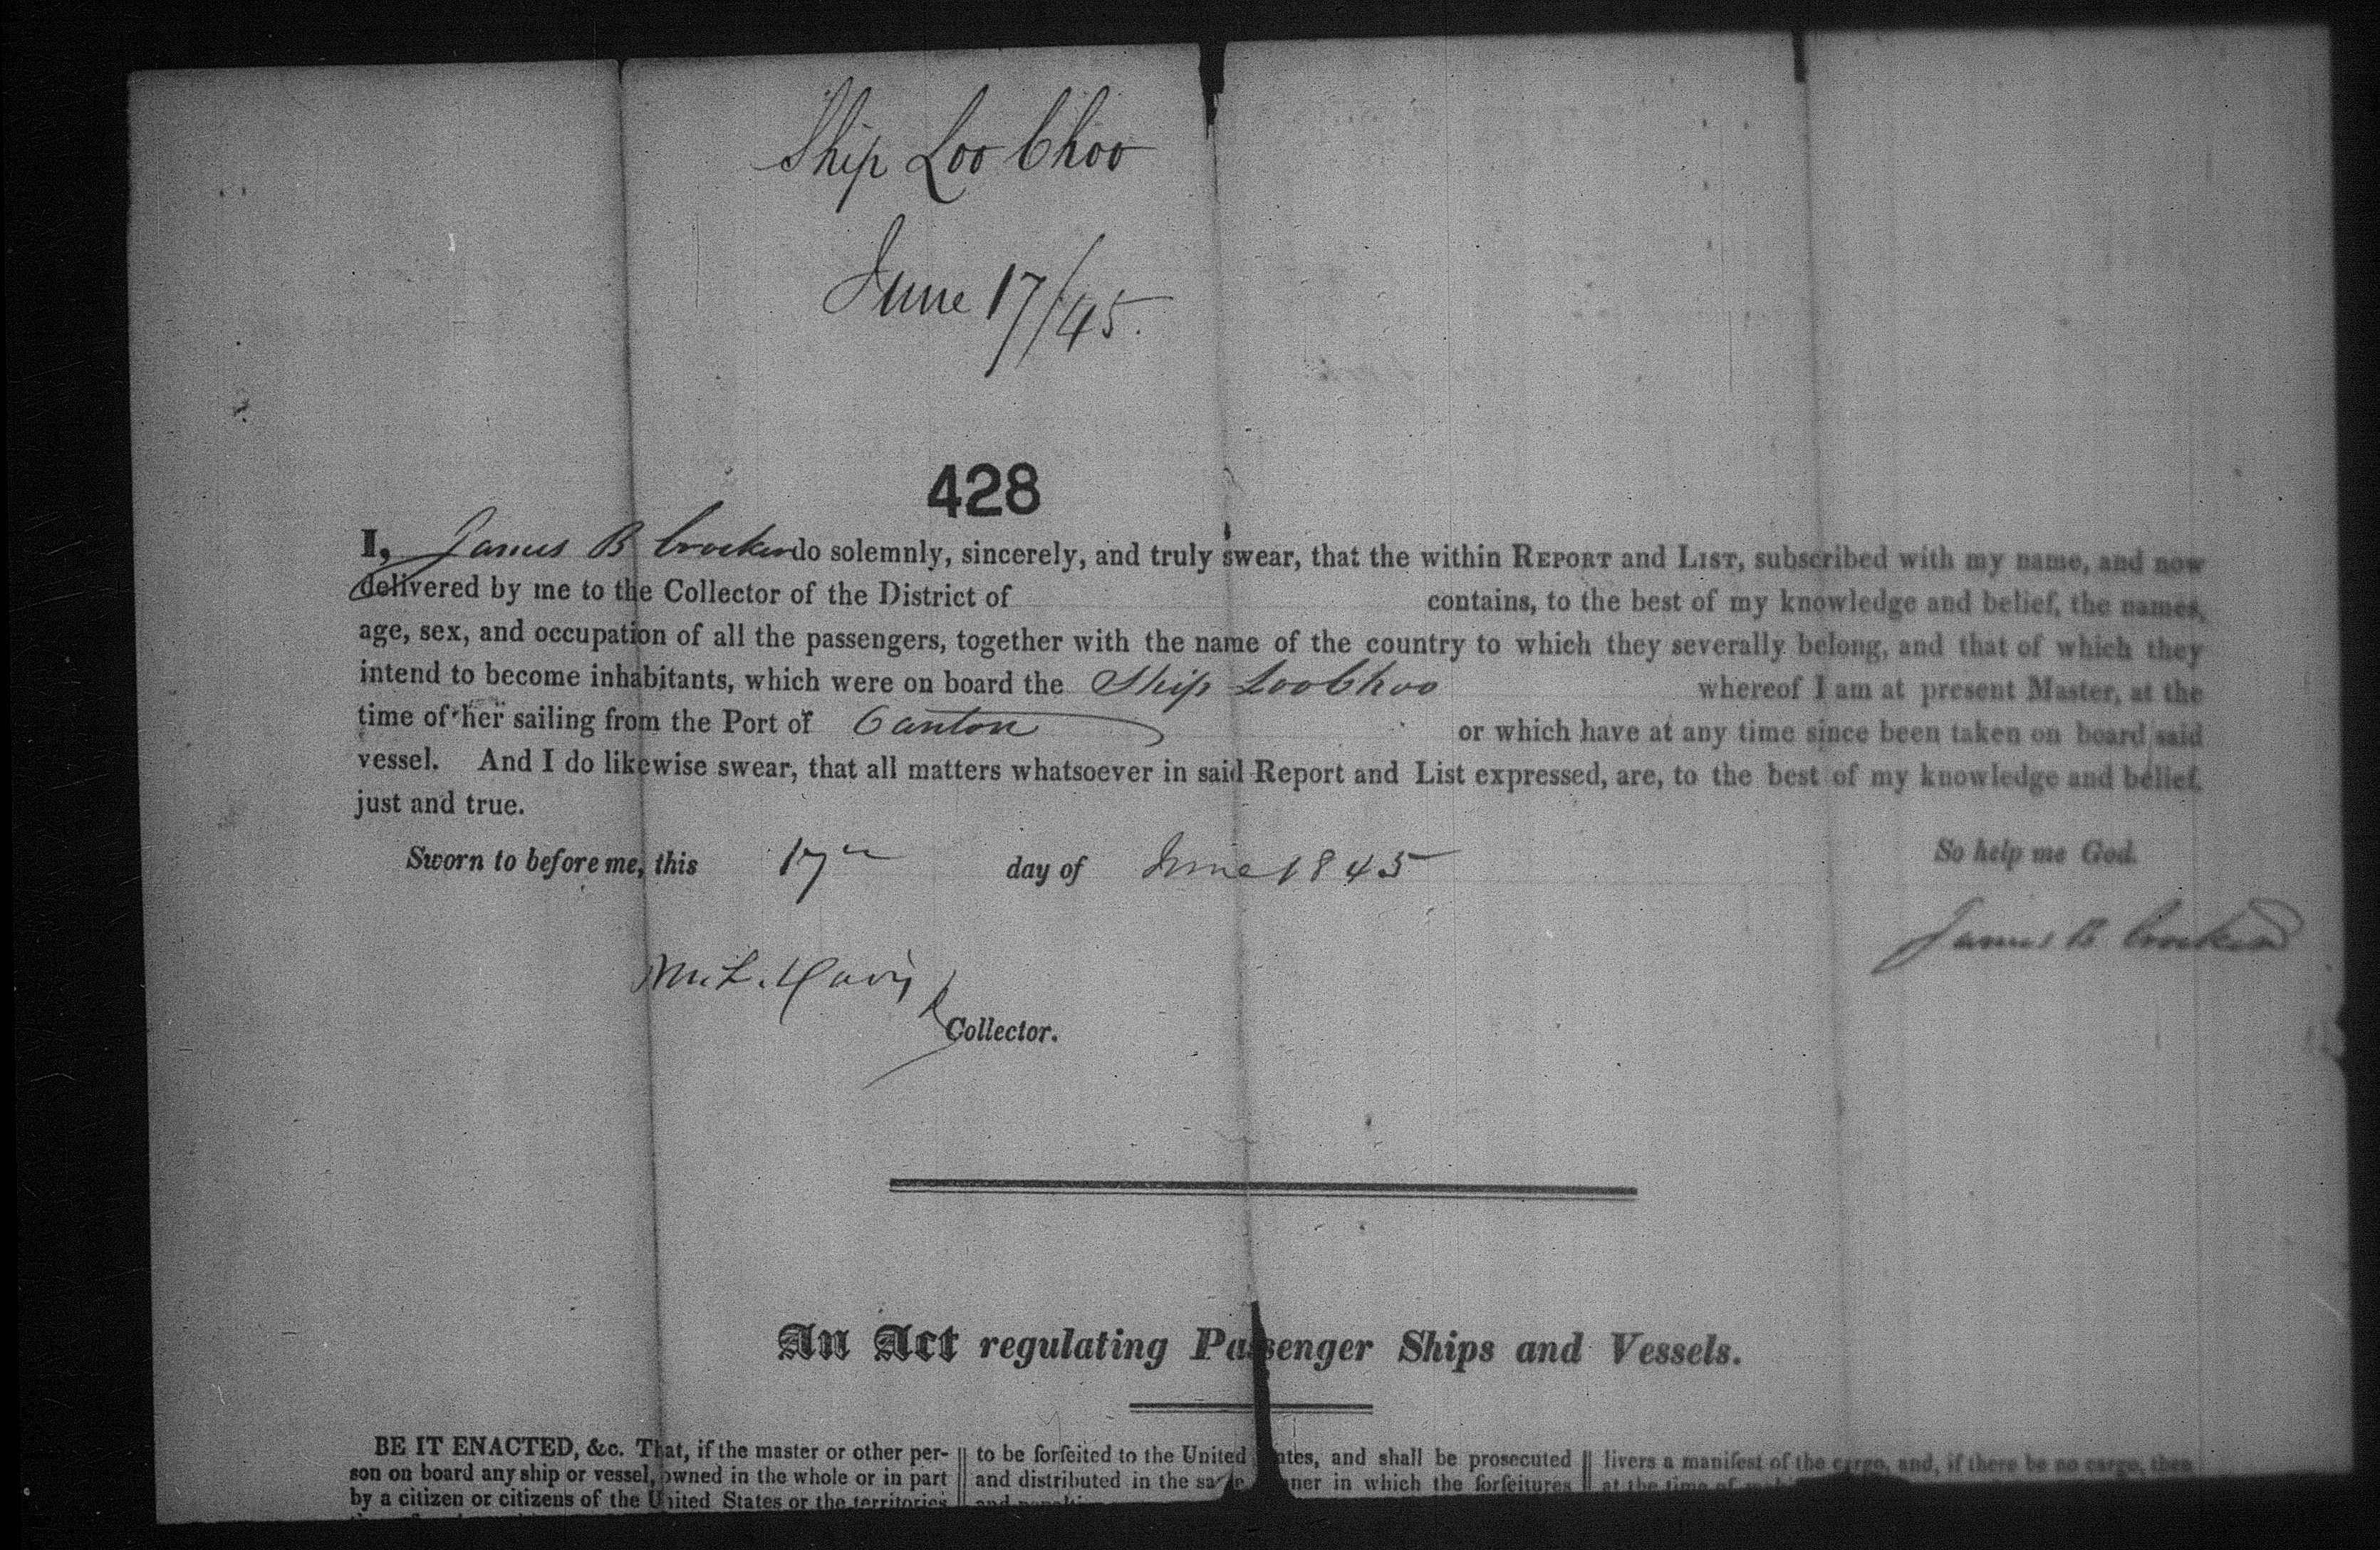 Ship Loo Choo
June 17/45.
428
I, James B Crocker do solemnly, sincerely, and truly swear, that the within REPORT and LIST, subscribed with my name, and now
delivered by me to the Collector of the District of contains, to the best of my knowledge and belief, the names,
age, sex, and occupation of all the passengers, together with the name of the country to which they severally belong, and that of which they
intend to become inhabitants, which were on board the Ship Loo Choo whereof I am at present Master, at the
time of her sailing from the Port of Canton or which have at any time since been taken on board said
vessel. And I do likewise swear, that all matters whatsoever in said Report and List expressed, are, to the best of my knowledge and belief,
just and true.
So help me God.
Sworn to before me, this 17 day of June 1845
James B Crocker
M. L. Davis
Collector.
An Act regulating Passenger Ships and Vessels.
BE IT ENACTED, &c. That, if the master or other per-
son on board any ship or vessel, owned in the whole or in part
by a citizen or citizens of the United States or the territories
to be forfeited to the United States, and shall be prosecuted
and distributed in the same manner in which the forfeitures
livers a manifest of the cargo, and, if there be no cargo, then
at the time of